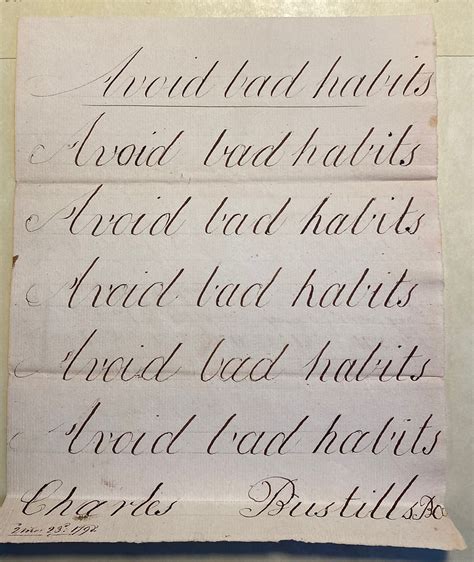 Avoid bad habits
Avoid bad habits
Avoid bad habits
Avoid bad habits
Avoid bad habits
Avoid bad habits
Charles Bustills
2 mo. 23d. 1792